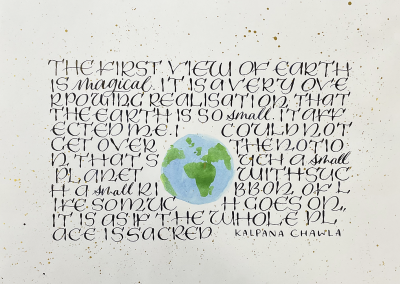 THE FIRST VIEW OF EARTH
IS magical. IT IS A VERY OVE
RPOWING REALISATION THAT
THE EARTH IS SO small. IT AFF
ECTED ME. I COULD NOT
GET OVER THE NOTIO
N THAT S UCH A small
PLANET WITH SUC
H A small RI BBON OF L
IFE SO MUC H GOES ON,,
IT IS AS IF THE WHOLE PL
ACE IS SACRED KALPANA CHAWLA